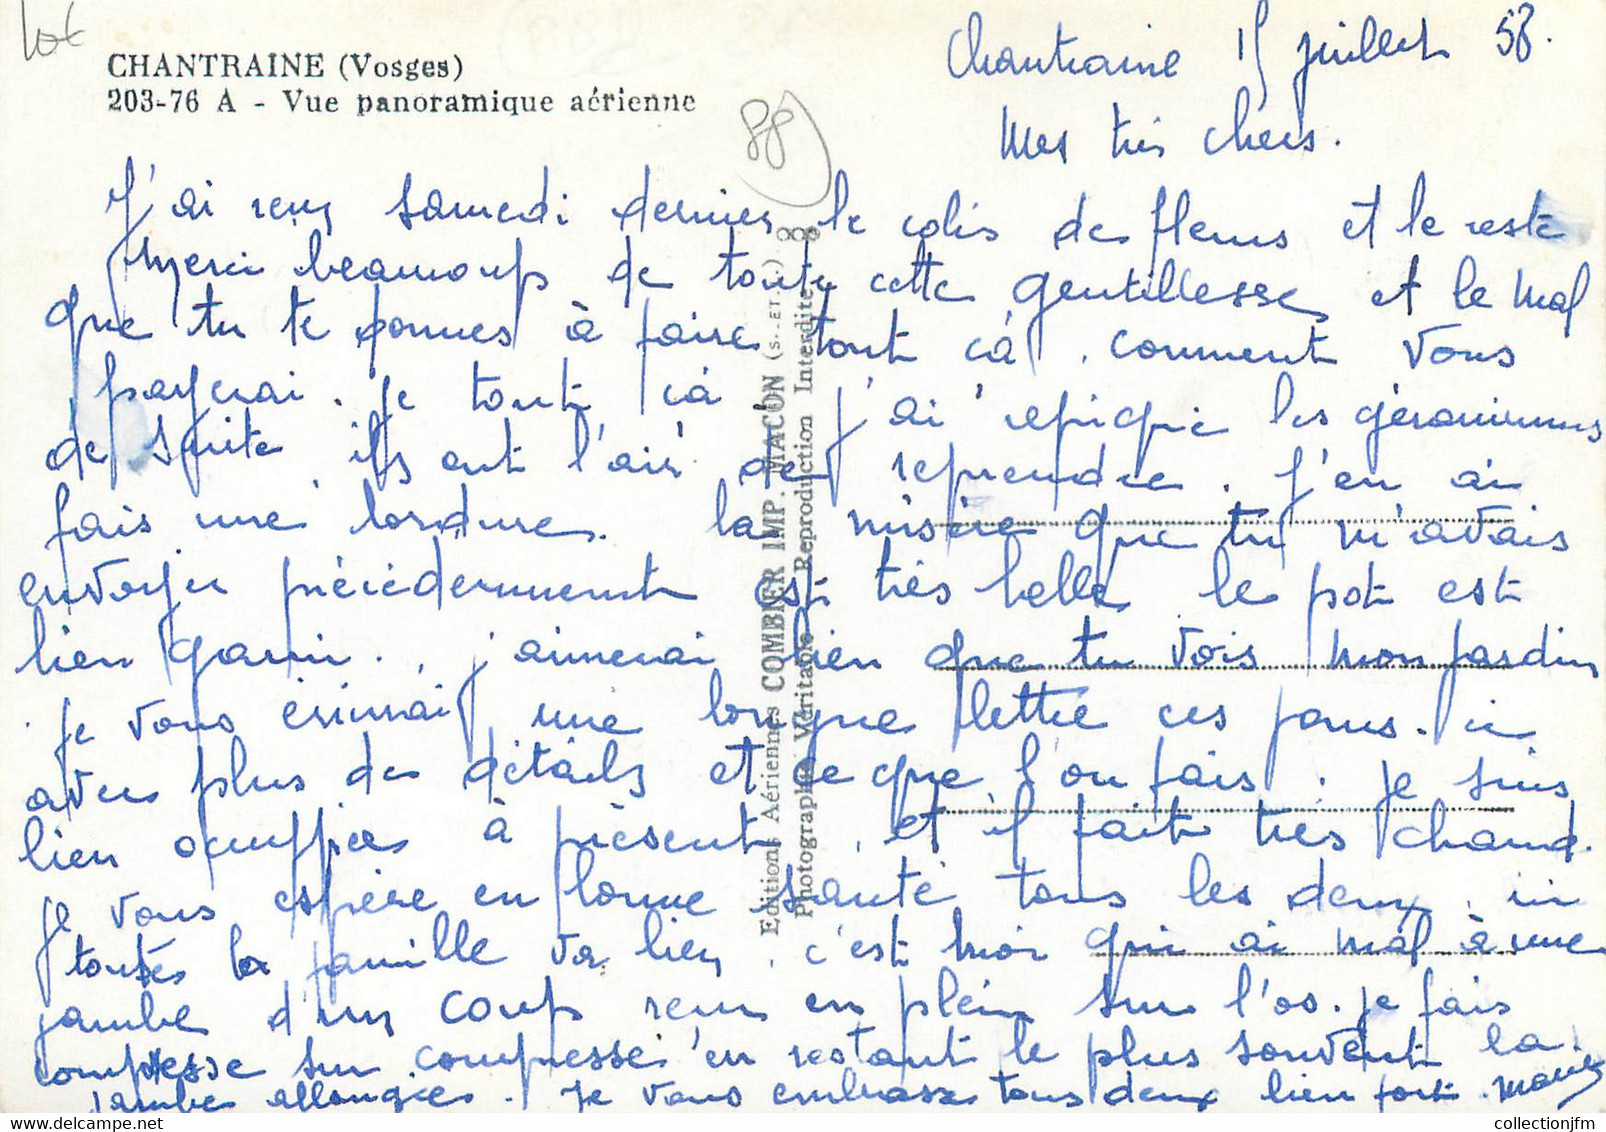 lot
CHANTRAINE (Vosges)
203-76 A - Vue panoramique aérienne
88
Chantraine 15 juillet 58.
Mes très chers.
J'ai reçu samedi dernier le colis de fleurs et le reste
Merci beaucoup de toute cette gentillesse et le mal
que tu te donnes à faire tout cà. comment vous
payerai. je tout cà j'ai repiqué les géraniums
de suite ils ont l'air de reprendre. j'en ai
fais une bordure. la misère que tu m'avais
envoyer précédemment est très belle le pot est
bien garni. j'aimerai bien que tu vois mon jardin
je vous écrirai une longue lettre ces jours. ci
avec plus de détails et ce que l'on fais. je suis
bien occuppée à présent, et il fait très chaud.
je vous espère en bonne santé tous les deux, ici
toutes la famille va bien, c'est moi qui ai mal à une
jambe d'un coup reçu en plein sur l'os. je fais
compresse sur compresse en restant le plus souvent la
jambe allongée. je vous embrasse tous deux bien fort.
Editions Aériennes COMBIER IMP. MACON (S.-ET-L.)
Photographie Véritable - Reproduction Interdite
collectionjfm